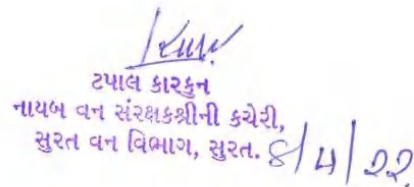 ટપાલ કારકુન
નાયબ વન સંરક્ષકશ્રીની કચેરી,
સુરત વન વિભાગ, સુરત. 8/4/22